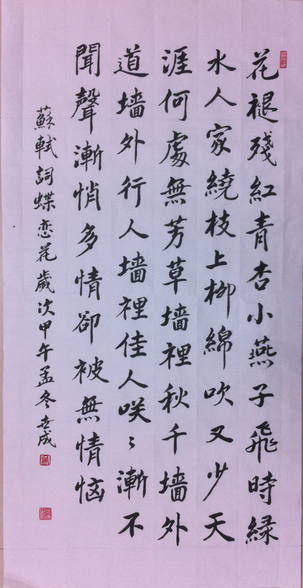 花褪殘紅青杏小燕子飛時緑
水人家繞枝上柳綿吹又少天
涯何處無芳草墙裡秋千墙外
道墙外行人墙裡佳人咲〻漸不
聞聲漸悄多情卻被無情恼
蘇軾詞蝶恋花歲次甲午孟冬